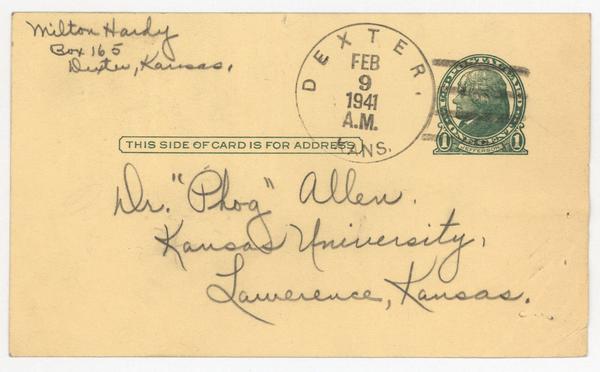 Milton Hardy
Box 165
Dexter, Kansas.
DEXTER.
FEB
9
1941
A.M.
KANS.
UNITED STATES POSTAGE
1 ONE CENT 1
JEFFERSON
THIS SIDE OF CARD IS FOR ADDRESS
Dr. "Phog" Allen.
Kansas University,
Lawerence, Kansas.